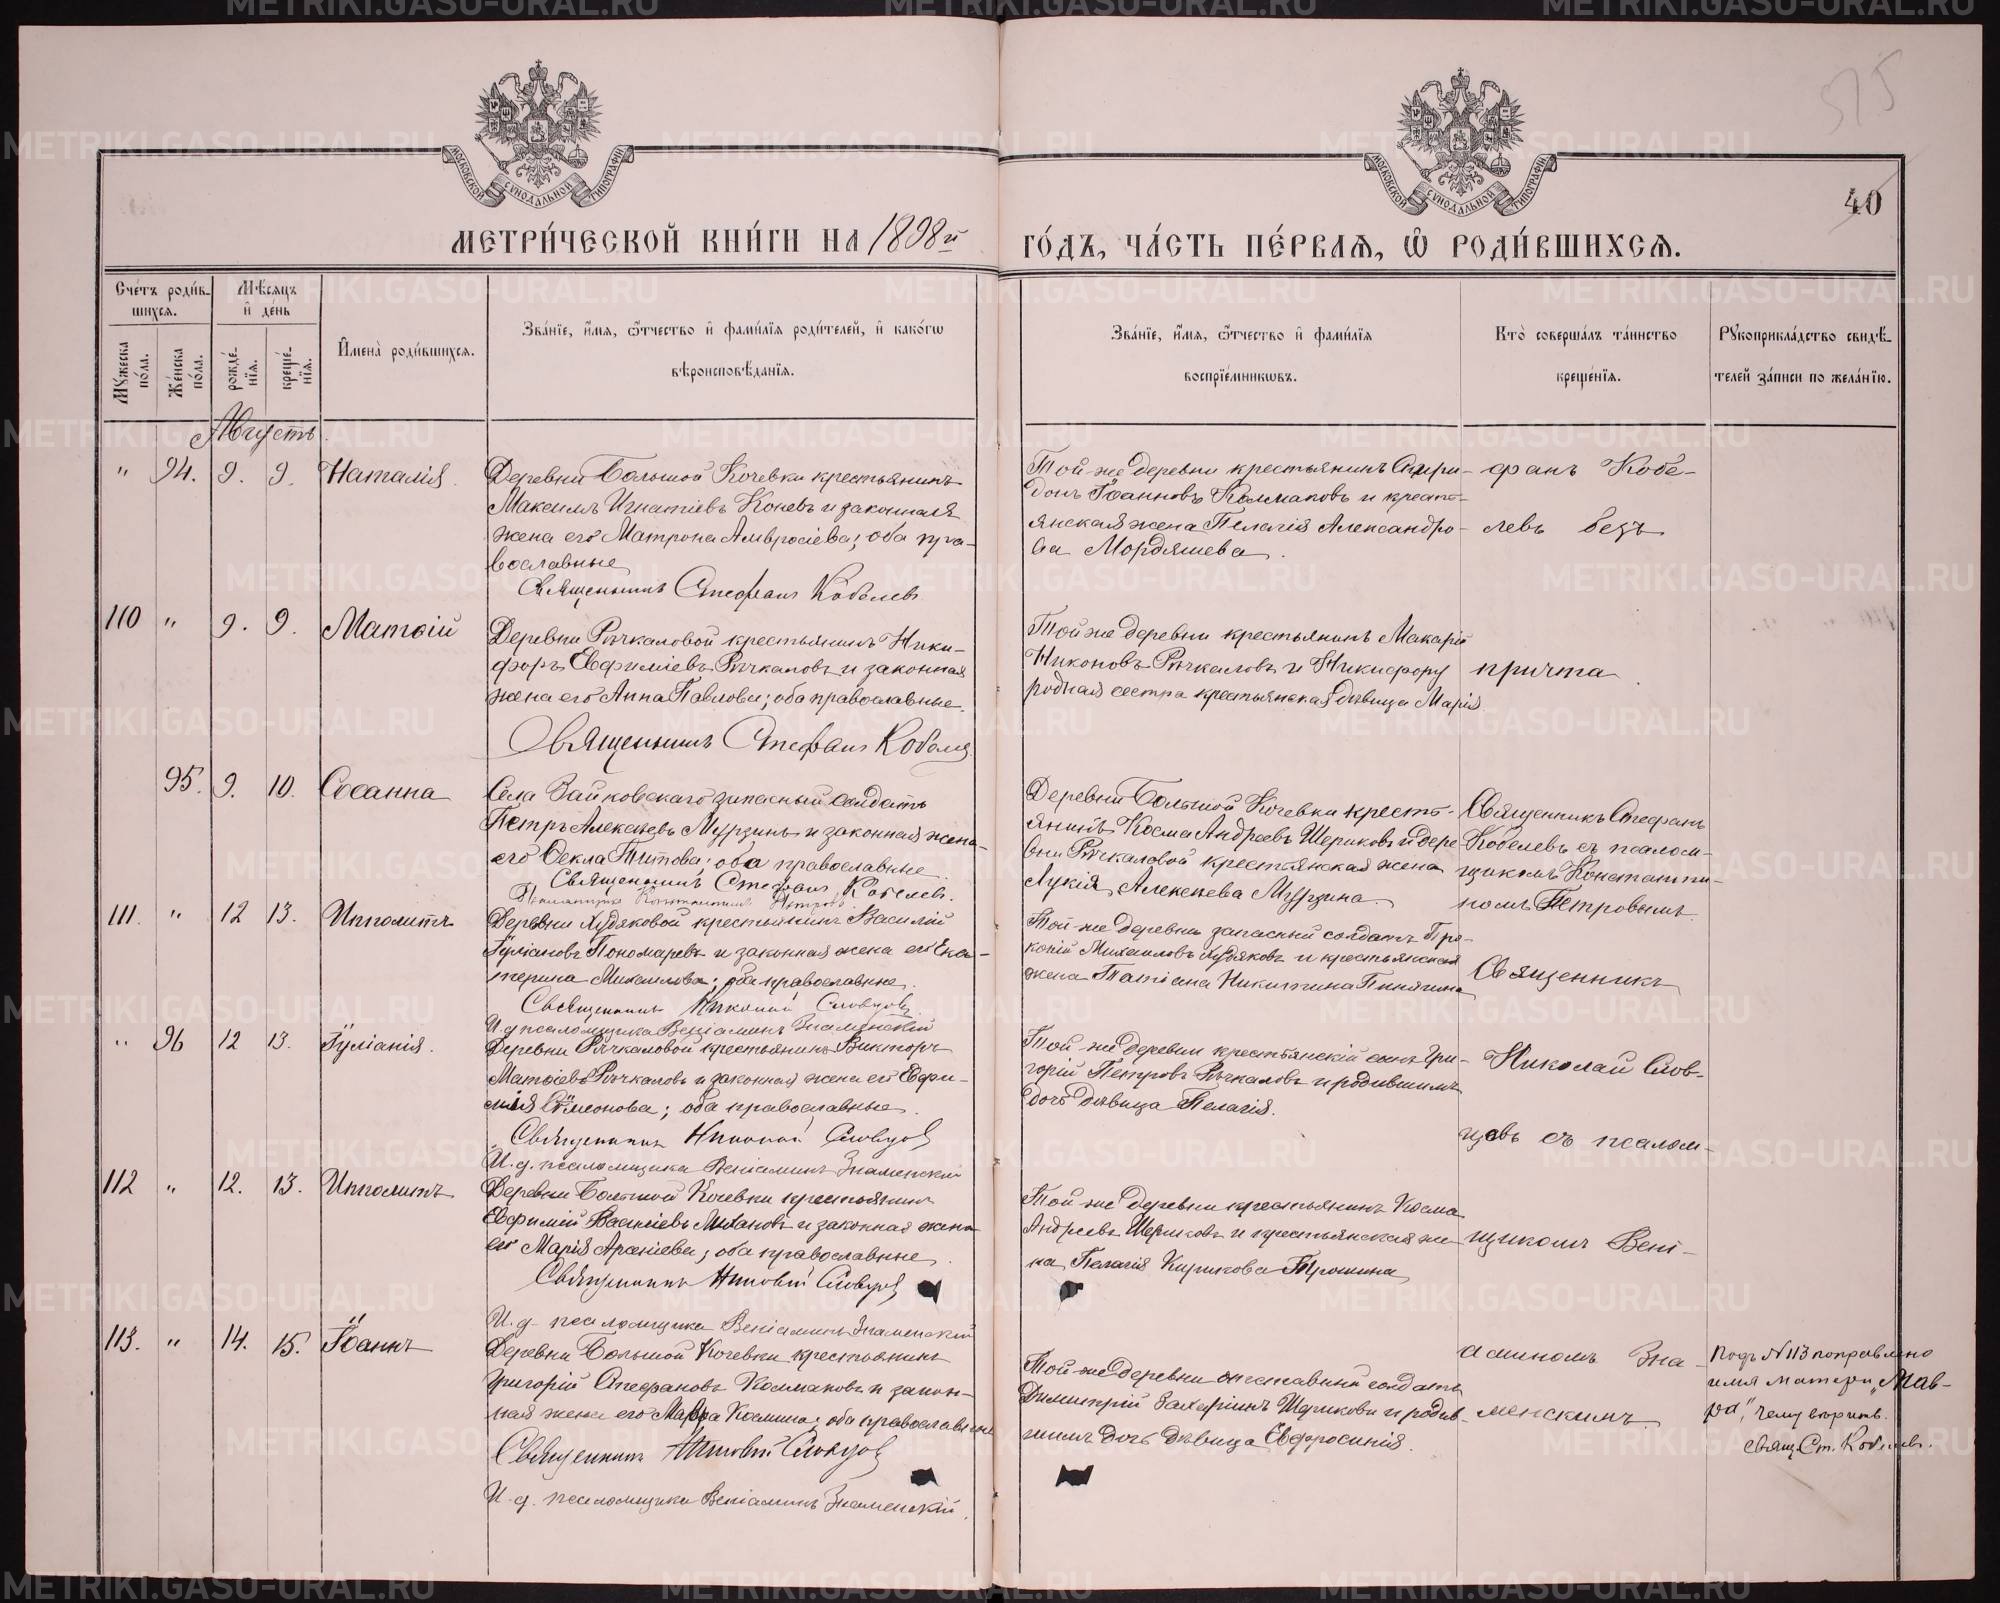 575
40
МОСКОВСКОЙ СѴНОДАЛЬНОЙ ТИПОГРАФІИ
МОСКОВСКОЙ СѴНОДАЛЬНОЙ ТИПОГРАФІИ
МЕТРИ́ЧЕСКОЙ КНИ́ГИ НА 1898й ГО́ДЪ, ЧА́СТЬ ПЕ́РВАЯ, Ѡ РОДИ́ВШИХСЯ.
Сче́тъ роди́в-
шихся.
Мѣ́сяцъ
и де́нь
Мꙋ́жеска по́ла.
Же́нска по́ла.
рожде́-нїя.
креще́-нїя.
Имена̀ роди́вшихся.
Зва́нїе, и́мя, ѻ́тчество и фами́лїя роди́телей, и како́гѡ
вѣроисповѣ́данїя.
Зва́нїе, и́мя, ѻ́тчество и фами́лїя
воспрїе́мникѡвъ.
Кто̀ соверша́лъ та́инство
креще́нїя.
Рꙋкоприкла́дство свидѣ́-
телей за́писи по жела́нїю.
Августъ.
" 94. 9. 9. Наталія.
Деревни Большой Кочевки крестьянинъ
Максимъ Игнатіевъ Коневъ и законная
жена его Матрона Амвросіева; оба пра-
вославные
Священникъ Стефанъ Кобелевъ
Той-же деревни крестьянинъ Спири-
донъ Іоанновъ Колмаковъ и кресть-
янская жена Пелагія Александро-
ва Мордяшева.
фанъ Кобе-
левъ безъ
110 " 9. 9. Матѳій
Деревни Рычкаловой крестьянинъ Ники-
форъ Евфиміевъ Рычкаловъ и законная
жена его Анна Павлова; оба православные.
Священникъ Стефанъ Кобелев
Той же деревни крестьянинъ Макарій
Никоновъ Рычкаловъ и Никифору
родная сестра крестьянская дѣвица Марія.
причта.
95. 9. 10. Сосанна
Села Зайковскаго запасный солдатъ
Петръ Алексѣевъ Мурзинъ и законная жена
его Ѳекла Титова; оба православные.
Священникъ Стефанъ Кобелевъ.
Псаломщикъ Константинъ Петровъ.
Деревни Большой Кочевки кресть-
янинъ Косма Андреевъ Шериковъ и дере-
вни Рычкаловой крестьянская жена
Лукія Алексѣева Мурзина.
Священникъ Стефанъ
Кобелевъ съ псалом-
щикомъ Константи-
номъ Петровымъ.
111. " 12 13. Ипполитъ
Деревни Худяковой крестьянинъ Василій
Іуліановъ Пономаревъ и законная жена его Ека-
терина Михаилова; оба православные.
Священникъ Николай Словцовъ
И. д. псаломщика Веніаминъ Знаменскій
Той-же деревни запасный солдатъ Про-
копій Михаиловъ Худяковъ и крестьянская
жена Татіана Никитина Пинягина
Священникъ
" 96 12 13. Іуліанія.
Деревни Рычкаловой крестьянинъ Викторъ
Матѳіевъ Рычкаловъ и законная жена его Евфи-
мія Сѵмеонова; оба православные.
Священникъ Николай Словцов
И. д. псаломщика Веніаминъ Знаменскій
Той-же деревни крестьянскій сынъ Гри-
горій Петровъ Рычкаловъ и родившимъ
дочь дѣвица Пелагія.
Николай Слов-
цовъ съ псалом-
112 " 12. 13. Ипполитъ
Деревни Большой Кочевки крестьянинъ
Евфимій Василіевъ Милановъ и законная жена
его Марія Арсеніева; оба православные.
Священникъ Николай Словцов
И. д. псаломщика Веніаминъ Знаменскій
Той-же деревни крестьянинъ Косма
Андреевъ Шериковъ и крестьянская же-
на Пелагія Кирикова Трошина
щикомъ Вені-
113. " 14. 15. Іоаннъ
Деревни Большой Кочевки крестьянинъ
Григорій Стефановъ Колмаковъ и закон-
ная жена его Мавра Космина; оба православные
Священникъ Николай Словцов
И. д. псаломщика Веніаминъ Знаменскій.
Той-же деревни отставный солдатъ
Димитрій Захаріинъ Шериковъ и родив-
шимъ дочь дѣвица Евфросинія.
аминомъ Зна-
менскимъ.
Подъ № 113 поправлено
имя матери „Мав-
ра“, чему вѣрить.
свящ. Ст. Кобелевъ.
METRIKI.GASO-URAL.RU